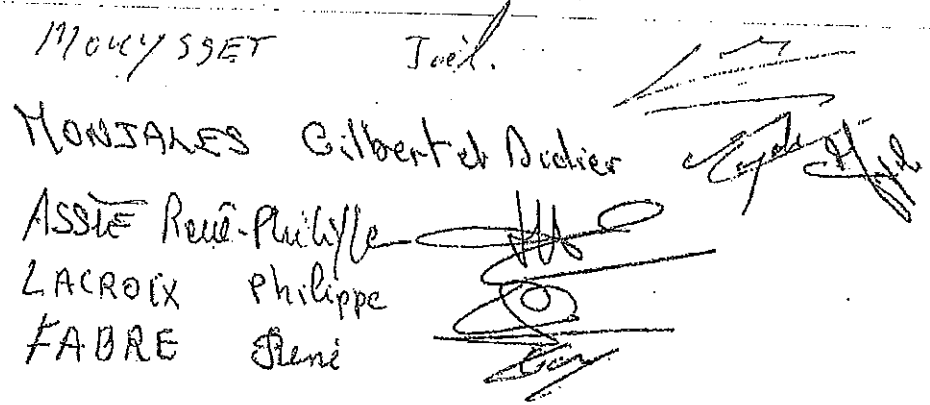 MOUYSSET Joël.
MONJALES Gilbert et Didier
ASSIE René-Philippe
LACROIX Philippe
FABRE René